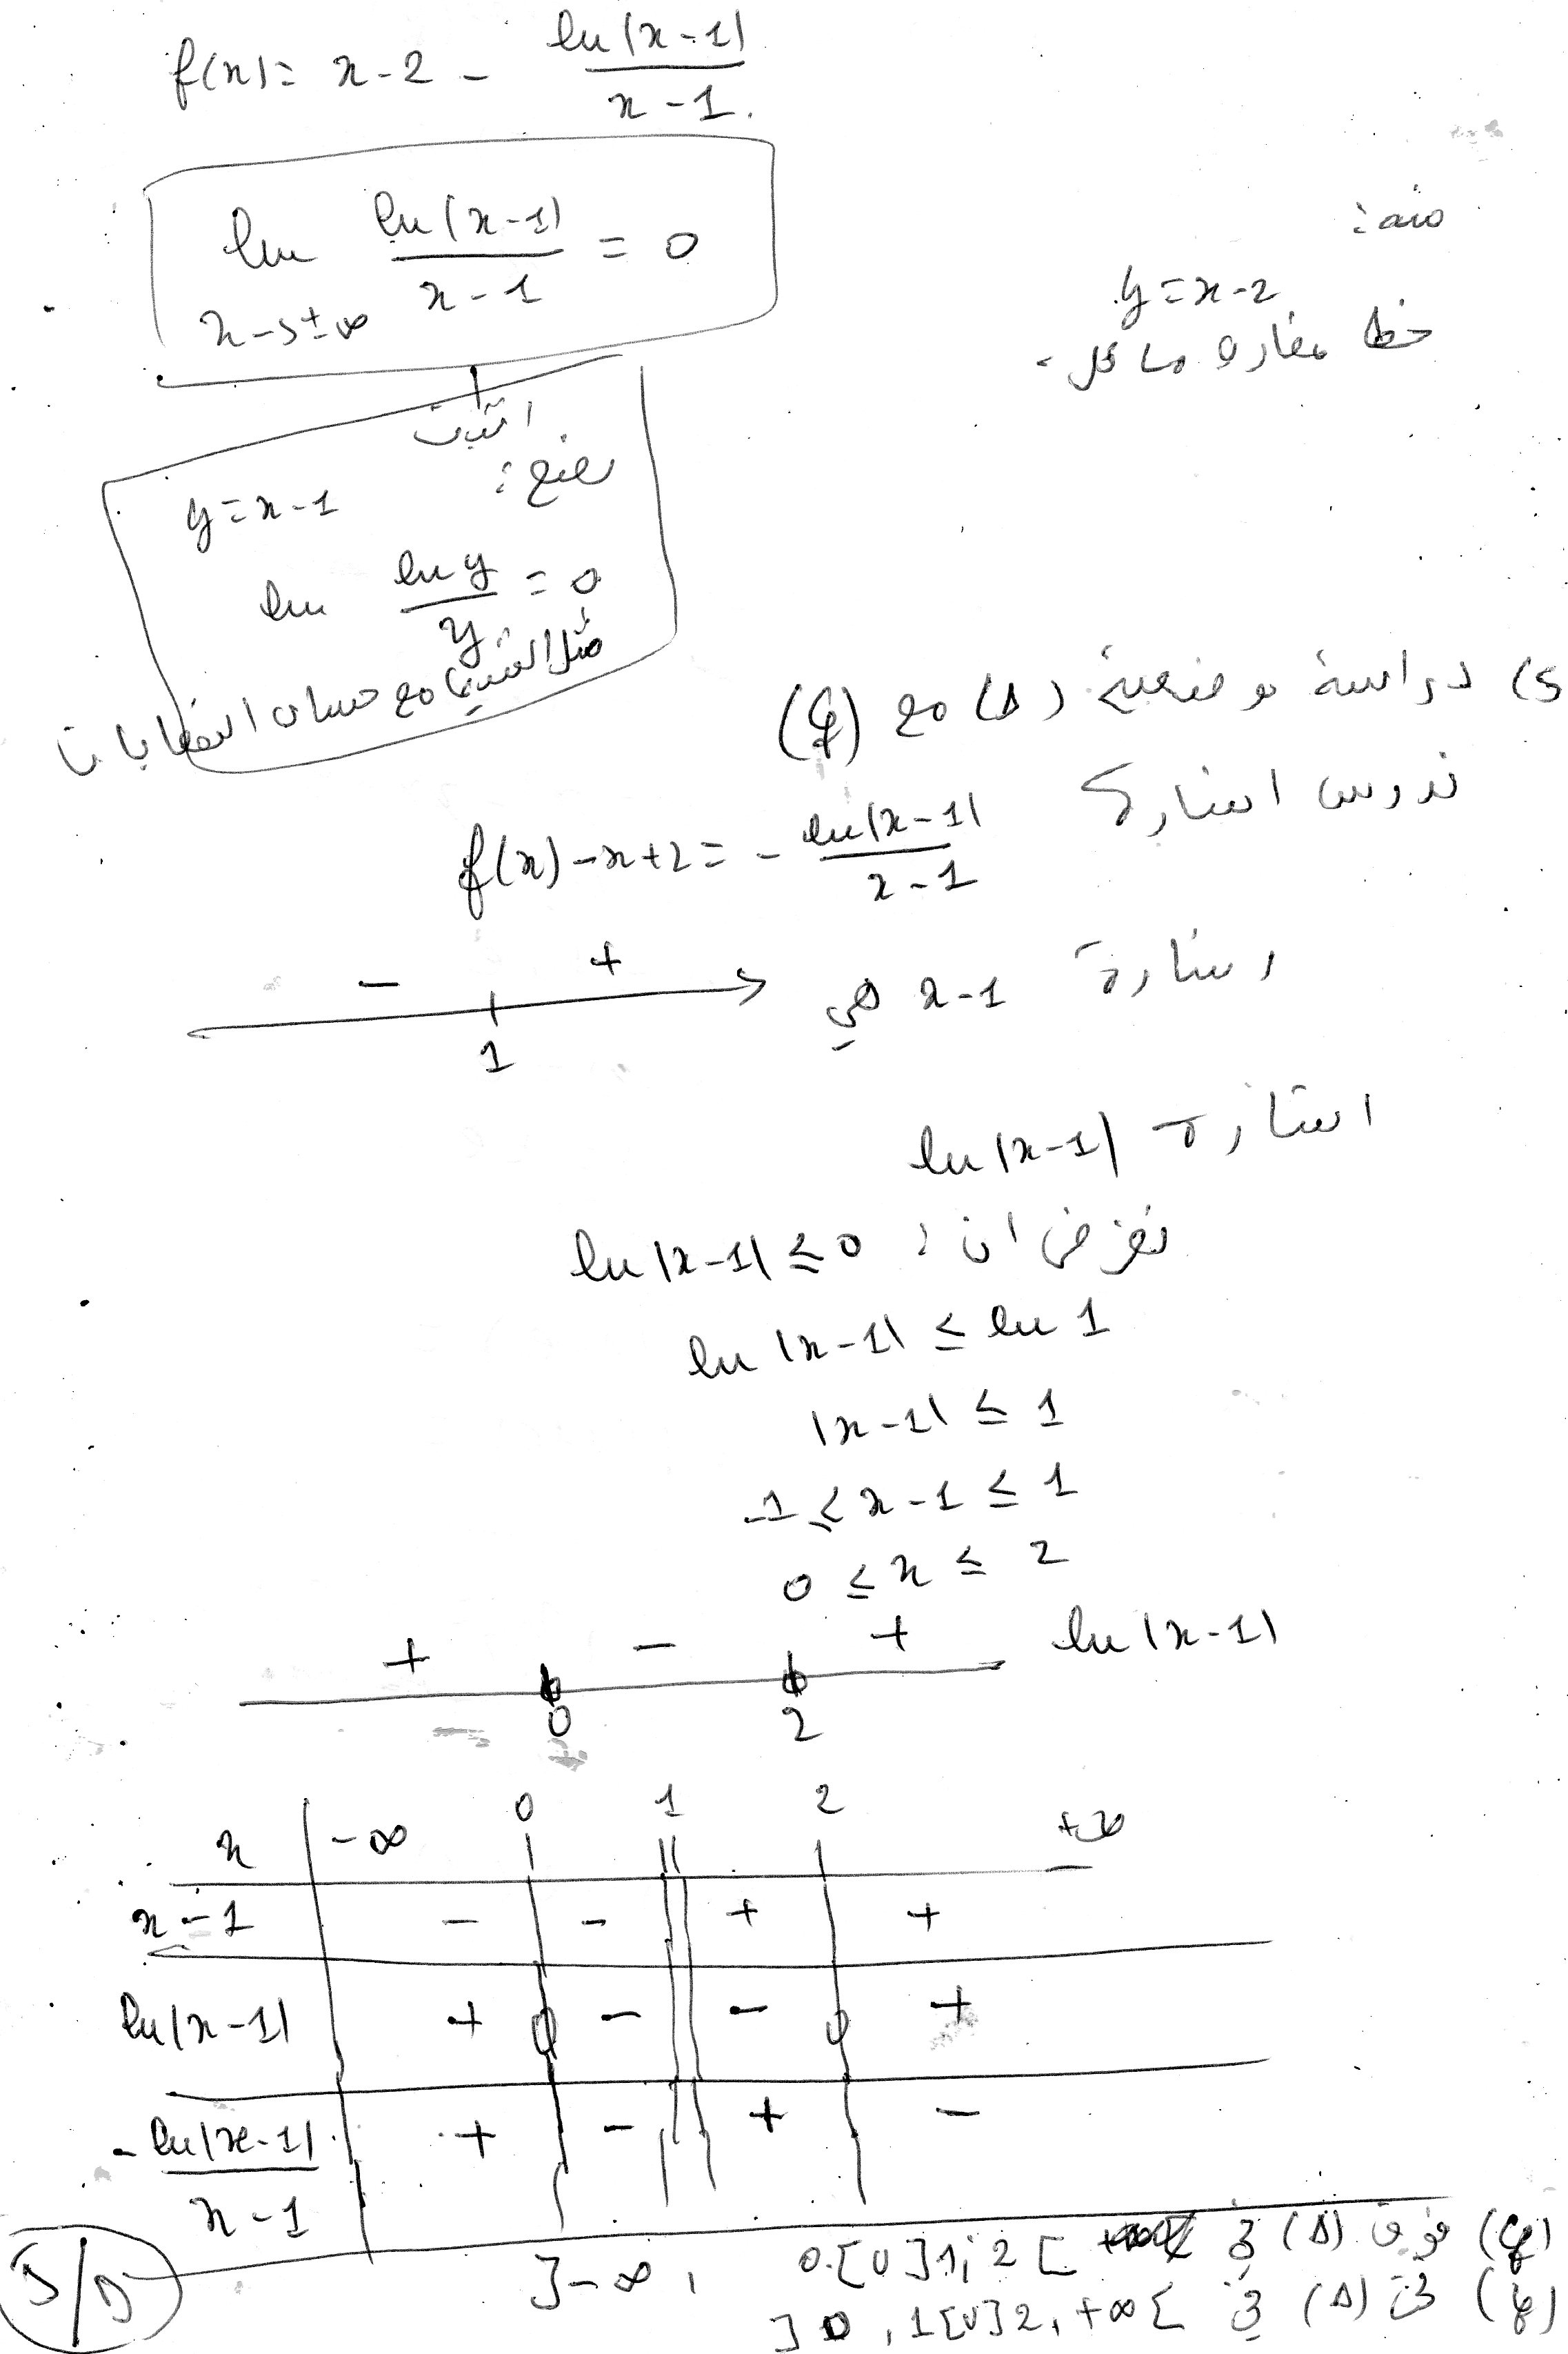 f(x) = x - 2 - ln|x-1| / x-1.
lim x→±∞ ln|x-1| / x-1 = 0
منه:
y = x-2
خط مقارب مائل.
اثبات
نضع:
y = x-1
lim ln y / y = 0
مع حساب النهايات
دراسة وضعية (Δ) مع (Cf)
ندرس اشارة f(x) - x + 2 = - ln|x-1| / x-1
اشارة x-1 هي
- +
1
اشارة ln|x-1|
نفرض ان: ln|x-1| ≤ 0
ln|x-1| ≤ ln 1
|x-1| ≤ 1
-1 ≤ x-1 ≤ 1
0 ≤ x ≤ 2
+ - + ln|x-1|
0 2
x -∞ 0 1 2 +∞
x-1 - - + +
ln|x-1| + 0 - - 0 +
- ln|x-1| / x-1 + - + -
(Cf) فوق (Δ) في ]-∞, 0[∪]1; 2[
(Cf) تحت (Δ) في ]0, 1[∪]2, +∞[